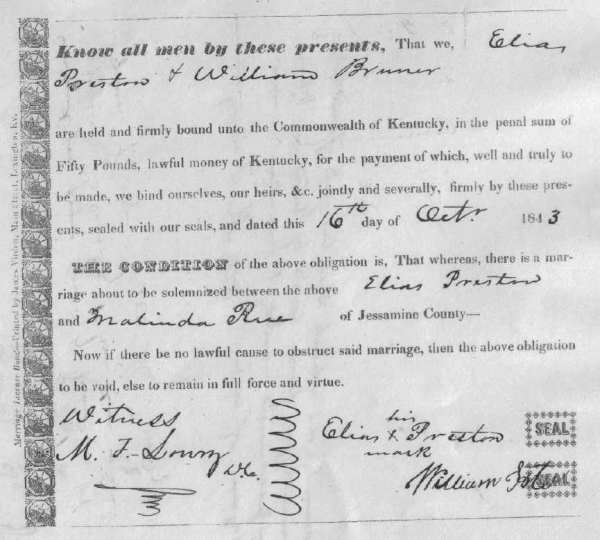 Know all men by these presents, That we, Elias
Preston & William Bruner
are held and firmly bound unto the Commonwealth of Kentucky, in the penal sum of
Fifty Pounds, lawful money of Kentucky, for the payment of which, well and truly to
be made, we bind ourselves, our heirs, &c. jointly and severally, firmly by these pres-
ents, sealed with our seals, and dated this 16th day of Octr. 1843
THE CONDITION of the above obligation is, That whereas, there is a mar-
riage about to be solemnized between the above Elias Preston
and Malinda Rue of Jessamine County—
Now if there be no lawful cause to obstruct said marriage, then the above obligation
to be void, else to remain in full force and virtue.
Witness
M. F. Lowry D.C.
his
Elias X Preston
mark
SEAL
William
SEAL
Marriage License Bond—Printed by James Virden, Main street, Lexington, Ky.